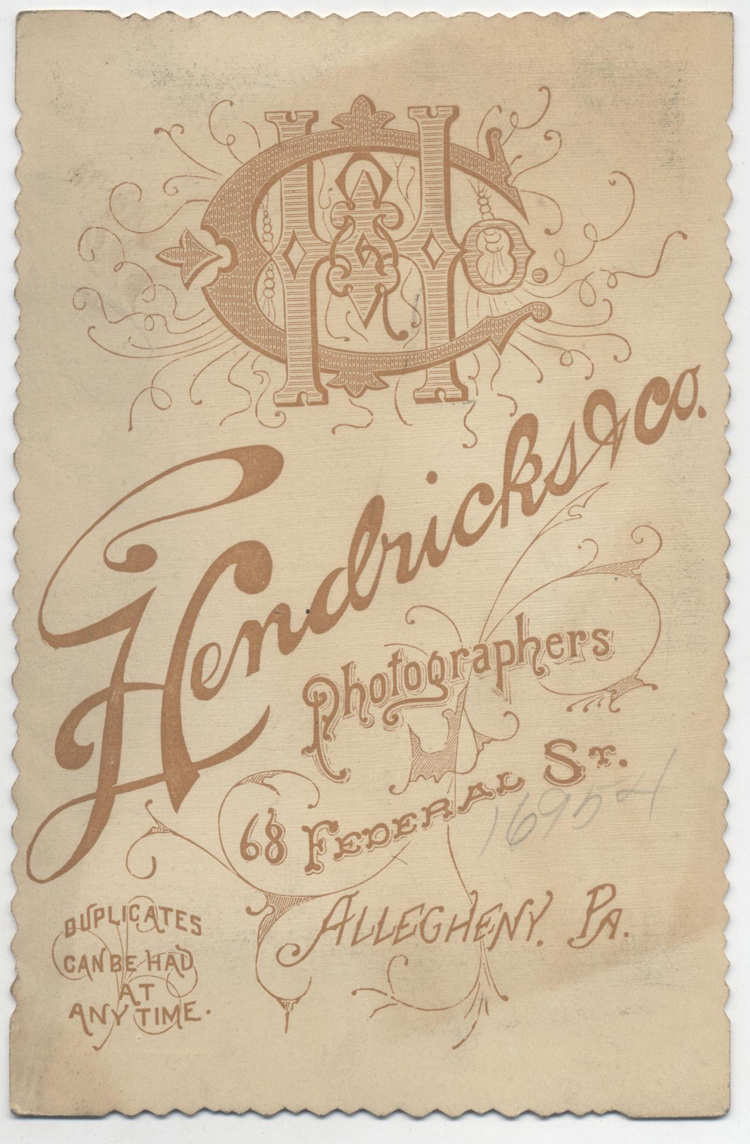 H & Co.
Hendricks & Co.
Photographers
68 Federal St.
16954
Allegheny, Pa.
DUPLICATES
CAN BE HAD
AT
ANY TIME.